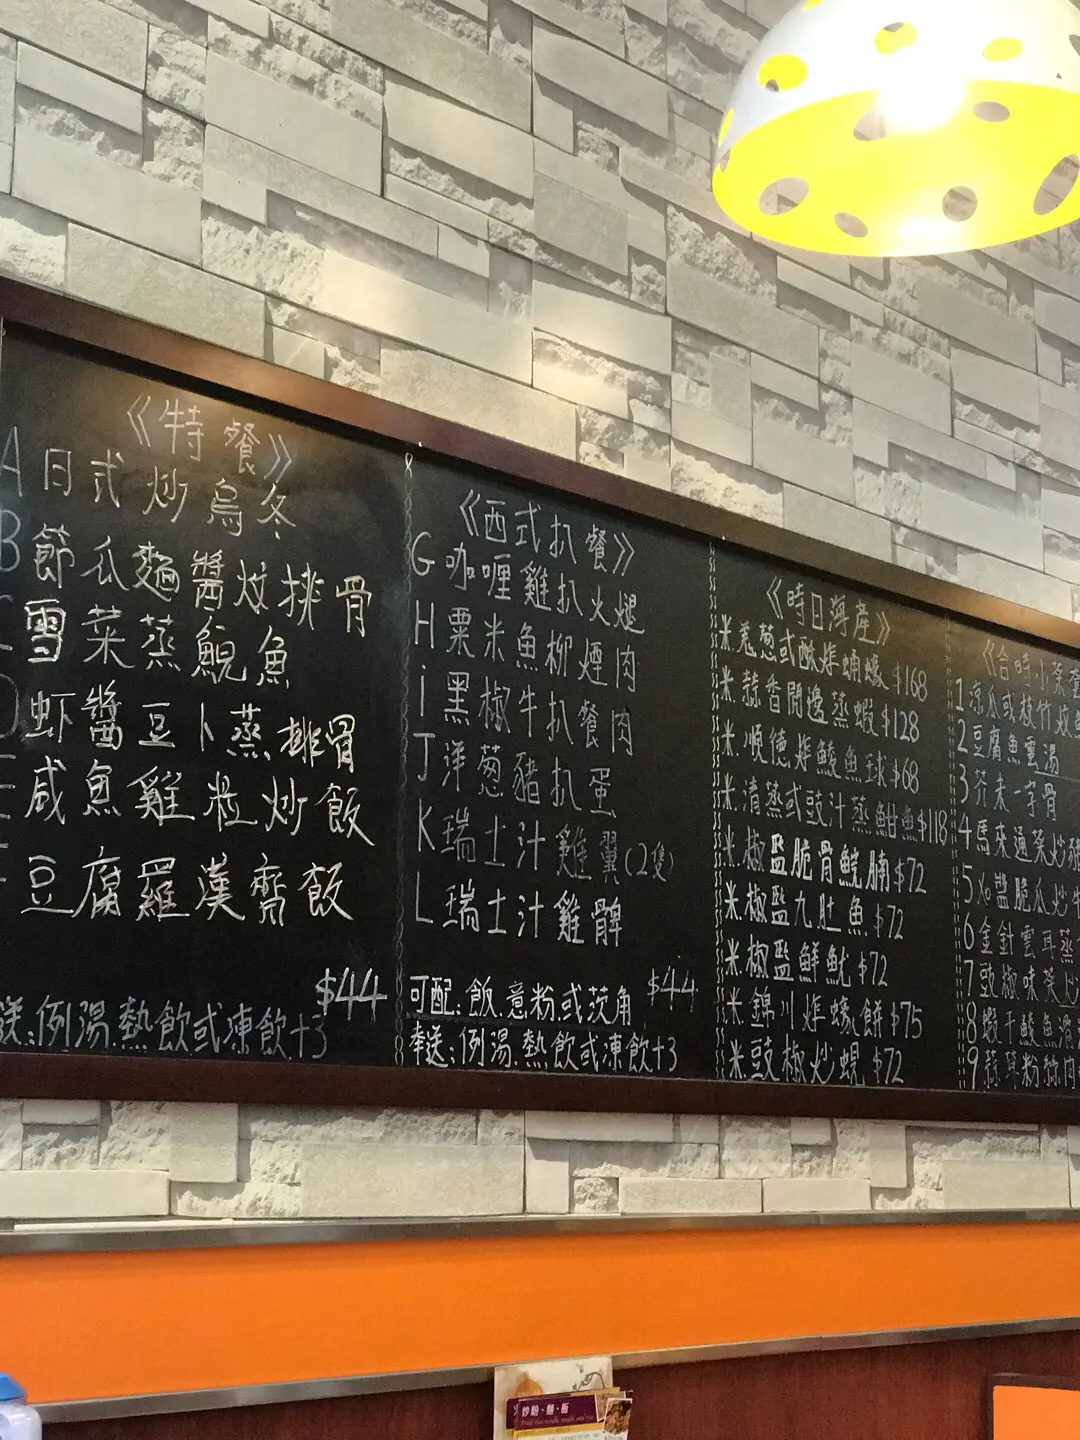 《特餐》
A 日式炒烏冬
B 節瓜麵醬炆排骨
雪菜蒸鯢魚
D 虾醬豆卜蒸排骨
E 咸魚雞粒炒飯
豆腐羅漢齋飯
$44
送:例湯.熱飲或凍飲+3
《西式扒餐》
G 咖喱雞扒火腿
H 粟米魚柳煙肉
i 黑椒牛扒餐肉
J 洋葱豬扒蛋
K 瑞士汁雞翼(2隻)
L 瑞士汁雞髀
$44
可配:飯.意粉或茨角
奉送:例湯.熱飲或凍飲+3
《時日海產》
米.羗葱或酥炸蠔 $168
米.蒜香開邊蒸蝦 $128
米.順德炸鯪魚球 $68
米.清蒸或豉汁蒸魚 $118
米.椒盬脆骨鯇腩 $72
米.椒盬九肚魚 $72
米.椒盬鮮魷 $72
米.錦川炸蠔餅 $75
米.豉椒炒蜆 $72
《合時小菜
1 凉瓜或枝竹炆
2 豆腐魚雲湯
3 芥末一字骨
4 馬來通菜炒
5 脆瓜炒
6 金針雲耳蒸
7 豉椒味菜炒
8 蝦干鯪魚
9 蒜茸粉絲
炒粉、麵、飯